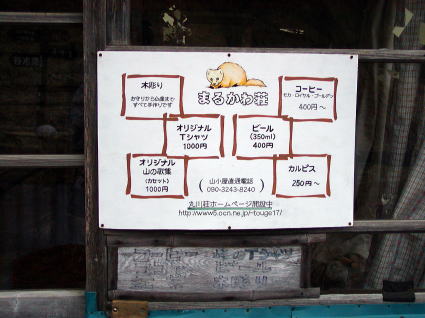 まるかわ荘
木彫り
お守りから仏像まで
すべて手作りです
コーヒー
モカ・ロイヤル・ゴールデン
400円～
オリジナル
Tシャツ
1000円
ビール
(350ml)
400円
オリジナル
山の歌集
(カセット)
1000円
カルピス
250円～
山小屋直通電話
090-3243-8240
丸川荘ホームページ開設中
http://www5.ocn.ne.jp/~touge17/